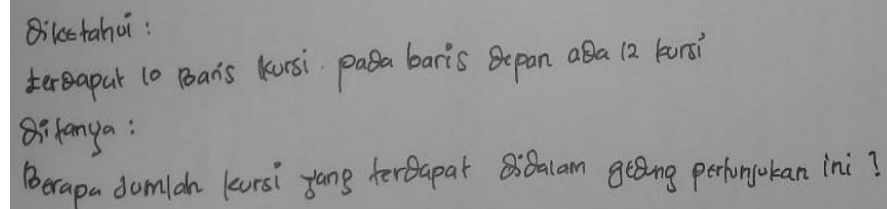 Diketahui :
terdapat 10 Baris kursi. pada baris depan ada 12 kursi
Ditanya :
Berapa Jumlah kursi yang terdapat didalam gedung pertunjukan ini ?